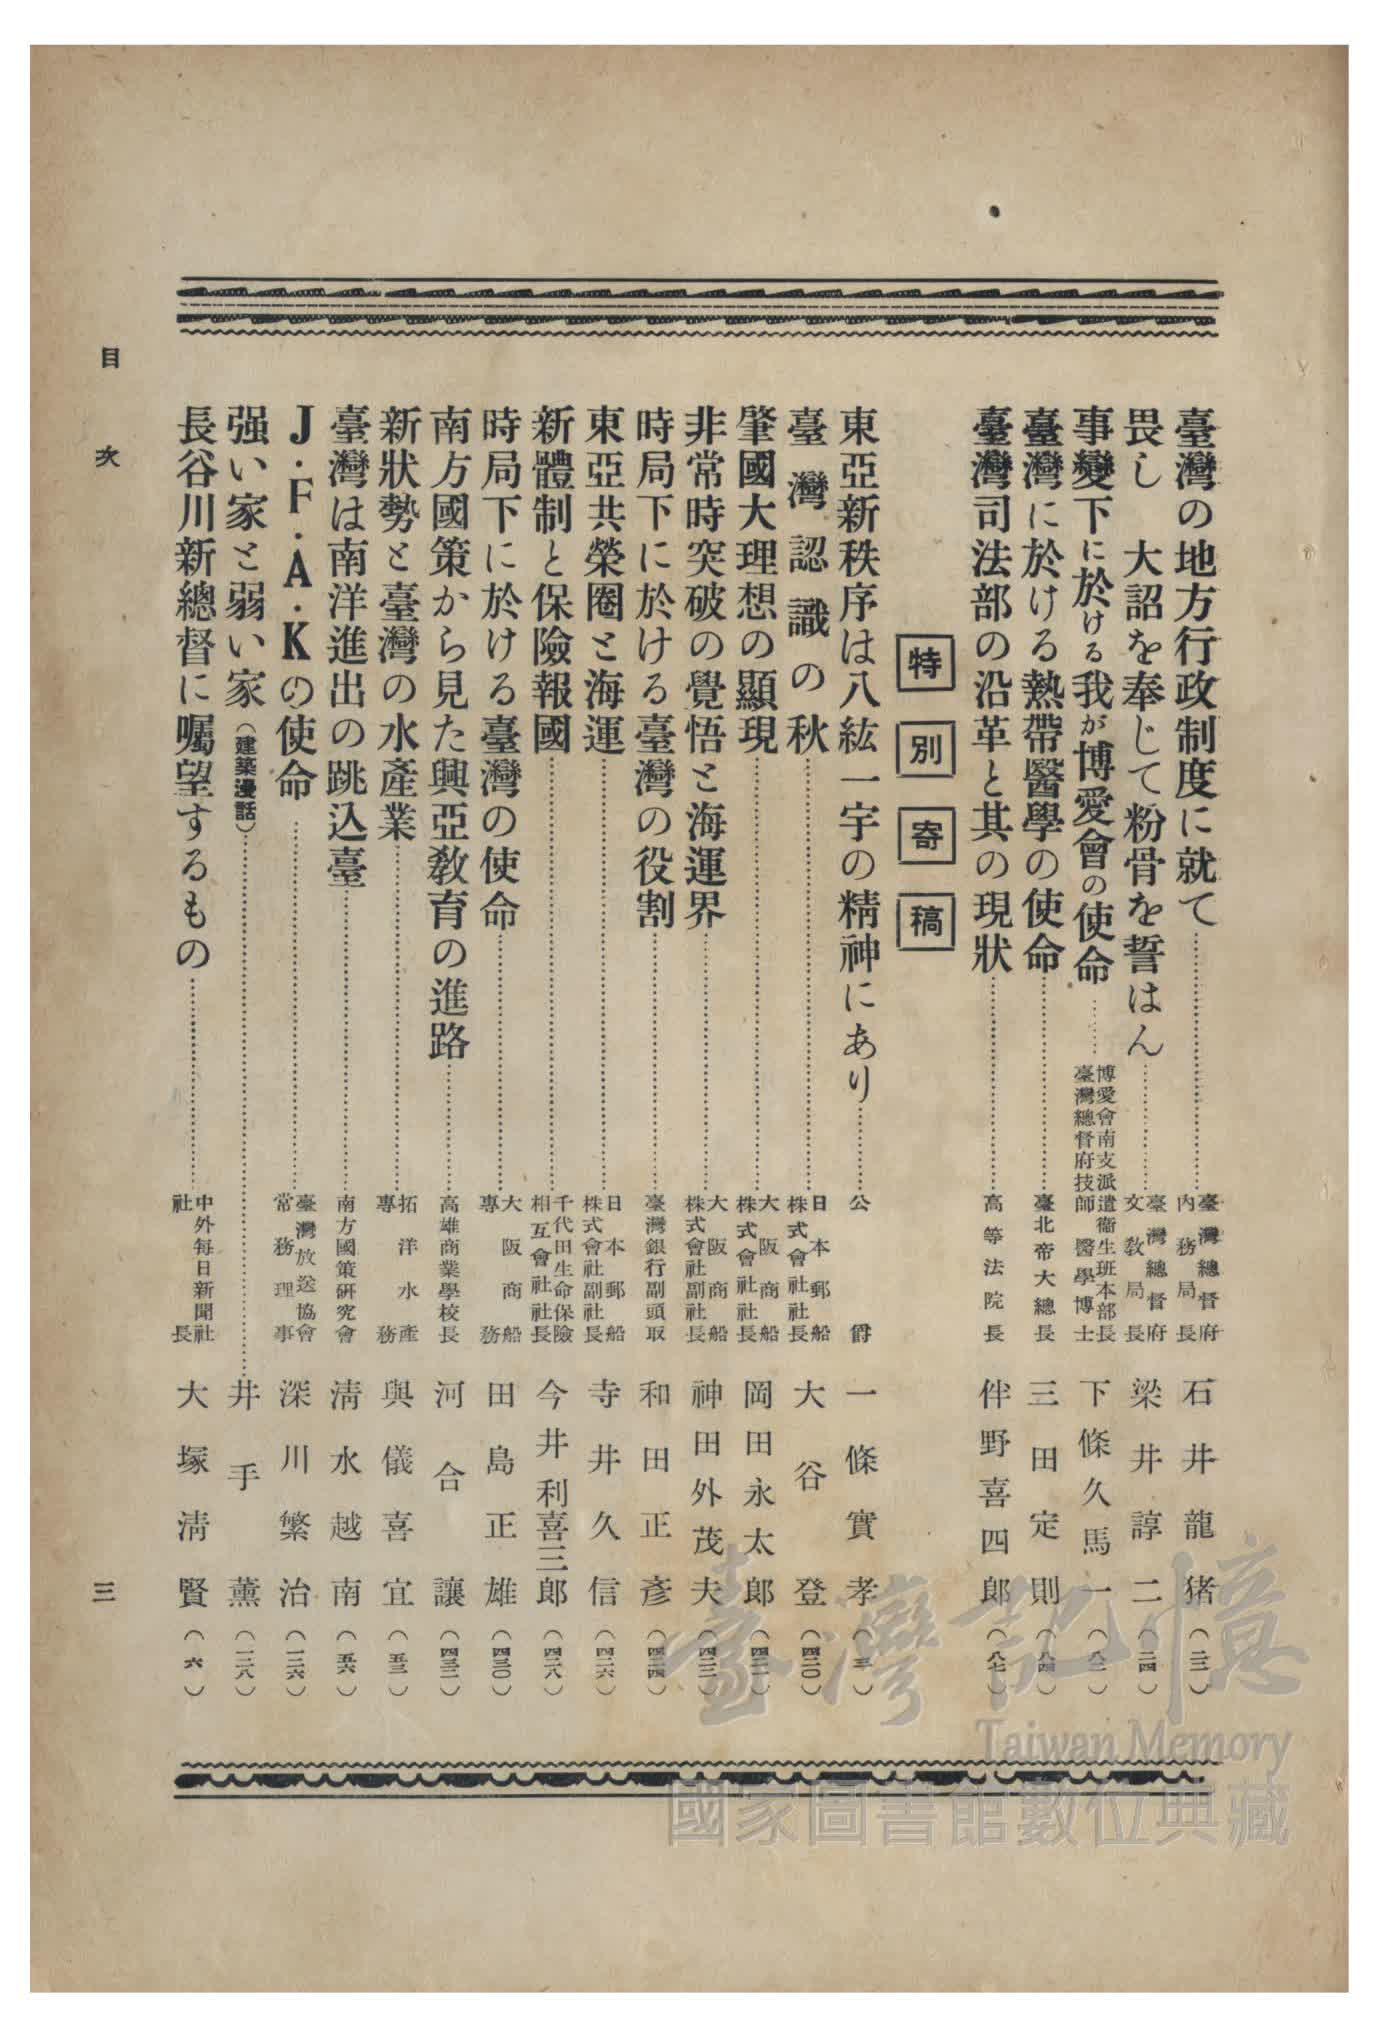 臺灣の地方行政制度に就て……臺灣總督府內務局長 石井龍猪(二三)
畏し 大詔を奉じて粉骨を誓はん……臺灣總督府文教局長 梁井諄二(二四)
事變下に於ける我が博愛會の使命……博愛會南支派遣衞生班本部長臺灣總督府技師醫學博士 下條久馬一(八二)
臺灣に於ける熱帶醫學の使命……臺北帝大總長 三田定則(八四)
臺灣司法部の沿革と其の現狀……高等法院長 伴野喜四郎(八七)
特別寄稿
東亞新秩序は八紘一宇の精神にあり……公爵 一條實孝(三)
臺灣認識の秋……日本郵船株式會社社長 大谷登(四二〇)
肇國大理想の顯現……大阪商船株式會社社長 岡田永太郎(四二一)
非常時突破の覺悟と海運界……大阪商船株式會社副社長 神田外茂夫(四二二)
時局下に於ける臺灣の役割……臺灣銀行副頭取 和田正彥(四二四)
東亞共榮圈と海運……日本郵船株式會社副社長 寺井久信(四二六)
新體制と保險報國……千代田生命保險相互會社社長 今井利喜三郎(四二八)
時局下に於ける臺灣の使命……大阪商船專務 田島正雄(四三〇)
南方國策から見た興亞教育の進路……高雄商業學校長 河合讓(四三二)
新狀勢と臺灣の水產業……拓洋水產專務 與儀喜宜(五三)
臺灣は南洋進出の跳込臺……南方國策研究會 淸水越南(五六)
J・F・A・Kの使命……臺灣放送協會常務理事 深川繁治(一二六)
强い家と弱い家(建築漫話)……井手薰(一二八)
長谷川新總督に囑望するもの……中外每日新聞社社長 大塚淸賢(六)
目次
三
臺灣記憶
Taiwan Memory
國家圖書館數位典藏